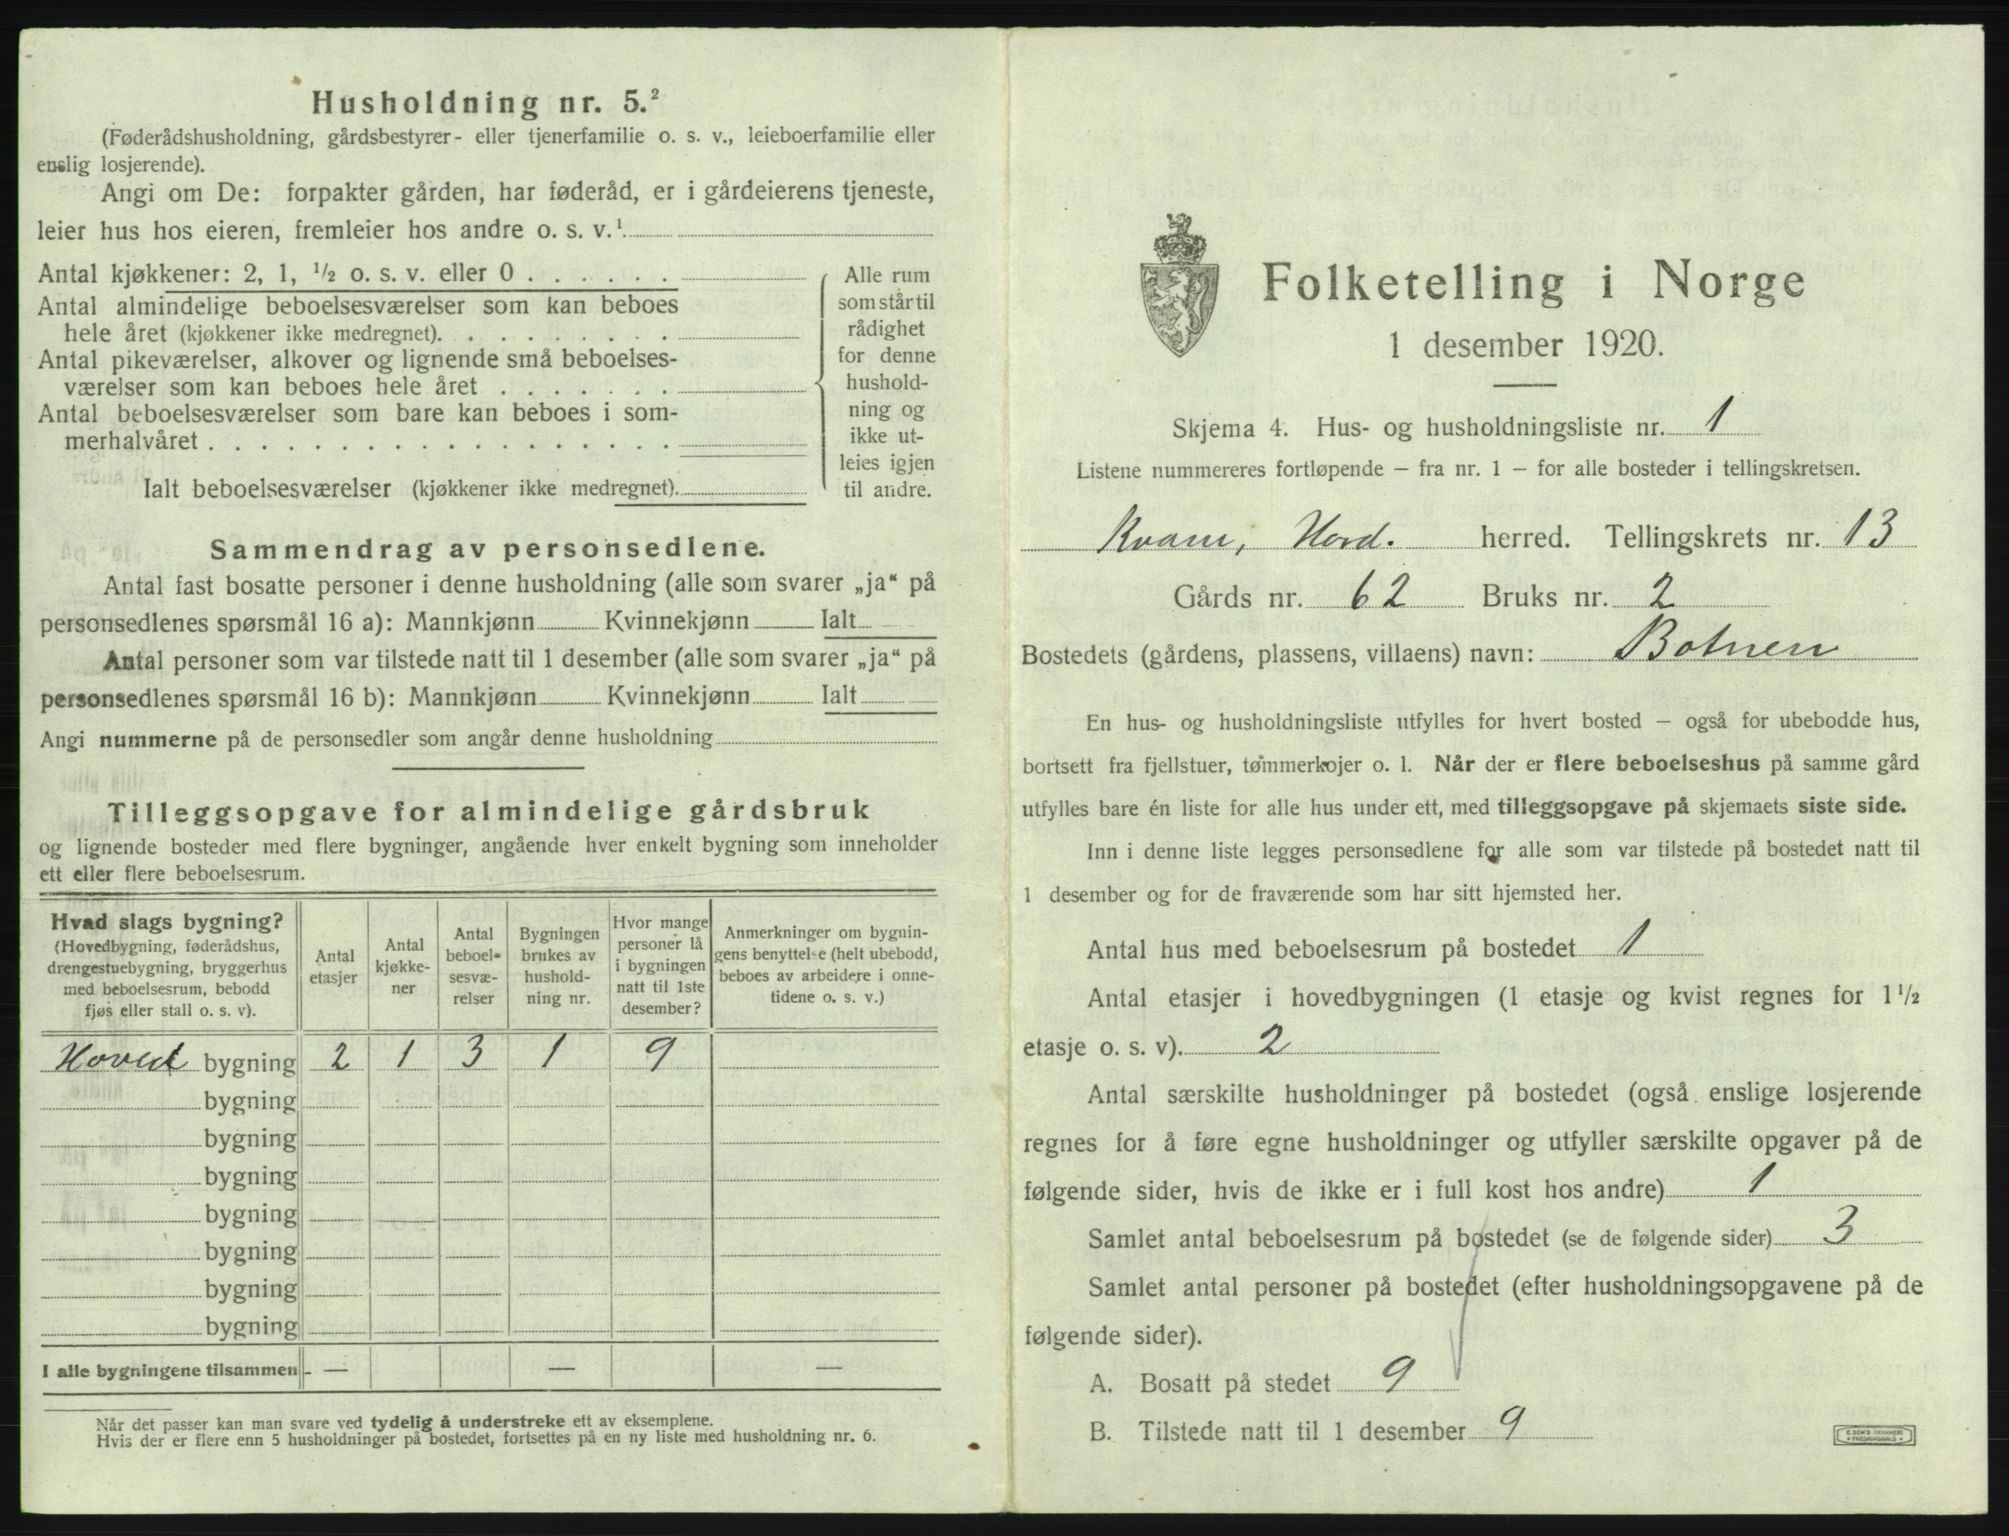 Husholdning nr. 5.²
(Føderådshusholdning, gårdsbestyrer- eller tjenerfamilie o. s. v., leieboerfamilie eller
enslig losjerende).
Angi om De: forpakter gården, har føderåd, er i gårdeierens tjeneste,
leier hus hos eieren, fremleier hos andre o. s. v.¹
Antal kjøkkener: 2, 1, ½ o. s. v. eller 0 . . . . . .
Antal almindelige beboelsesværelser som kan beboes
hele året (kjøkkener ikke medregnet). . . . . . . . . .
Antal pikeværelser, alkover og lignende små beboelses-
værelser som kan beboes hele året . . . . . . .
Antal beboelsesværelser som bare kan beboes i som-
merhalvåret . . . . . . . . . . . . . . . . . .
Ialt beboelsesværelser (kjøkkener ikke medregnet).
Alle rum
som står til
rådighet
for denne
hushold-
ning og
ikke ut-
leies igjen
til andre.
Sammendrag av personsedlene.
Antal fast bosatte personer i denne husholdning (alle som svarer „ja“ på
personsedlenes spørsmål 16 a): Mannkjønn Kvinnekjønn Ialt
Antal personer som var tilstede natt til 1 desember (alle som svarer „ja“ på
personsedlenes spørsmål 16 b): Mannkjønn Kvinnekjønn Ialt
Angi nummerne på de personsedler som angår denne husholdning
Tilleggsopgave for almindelige gårdsbruk
og lignende bosteder med flere bygninger, angående hver enkelt bygning som inneholder
ett eller flere beboelsesrum.
Hvad slags bygning?
(Hovedbygning, føderådshus,
drengestuebygning, bryggerhus
med beboelsesrum, bebodd
fjøs eller stall o. s. v).
Antal
etasjer
Antal
kjøkke-
ner
Antal
beboel-
sesvæ-
relser
Bygningen
brukes av
hushold-
ning nr.
Hvor mange
personer lå
i bygningen
natt til 1ste
desember?
Anmerkninger om bygnin-
gens benyttelse (helt ubebodd,
beboes av arbeidere i onne-
tidene o. s. v.)
Hoved bygning 2 1 3 1 9
bygning
bygning
bygning
bygning
bygning
bygning
bygning
I alle bygningene tilsammen - — — —
Når det passer kan man svare ved tydelig å understreke ett av eksemplene.
Hvis der er flere enn 5 husholdninger på bostedet, fortsettes på en ny liste med husholdning nr. 6.
Folketelling i Norge
1 desember 1920.
Skjema 4. Hus- og husholdningsliste nr. 1
Listene nummereres fortløpende – fra nr. 1 – for alle bosteder i tellingskretsen.
Kvam, Hord. herred. Tellingskrets nr. 13
Gårds nr. 62 Bruks nr. 2
Bostedets (gårdens, plassens, villaens) navn: Botnen
En hus- og husholdningsliste utfylles for hvert bosted – også for ubebodde hus,
bortsett fra fjellstuer, tømmerkojer o. l. Når der er flere beboelseshus på samme gård
utfylles bare én liste for alle hus under ett, med tilleggsopgave på skjemaets siste side.
Inn i denne liste legges personsedlene for alle som var tilstede på bostedet natt til
1 desember og for de fraværende som har sitt hjemsted her.
Antal hus med beboelsesrum på bostedet 1
Antal etasjer i hovedbygningen (1 etasje og kvist regnes for 1½
etasje o. s. v). 2
Antal særskilte husholdninger på bostedet (også enslige losjerende
regnes for å føre egne husholdninger og utfyller særskilte opgaver på de
følgende sider, hvis de ikke er i full kost hos andre) 1
Samlet antal beboelsesrum på bostedet (se de følgende sider) 3
Samlet antal personer på bostedet (efter husholdningsopgavene på de
følgende sider).
A. Bosatt på stedet 9
B. Tilstede natt til 1 desember 9
E. SEM'S TRYKKERI
FREDRIKSHALD